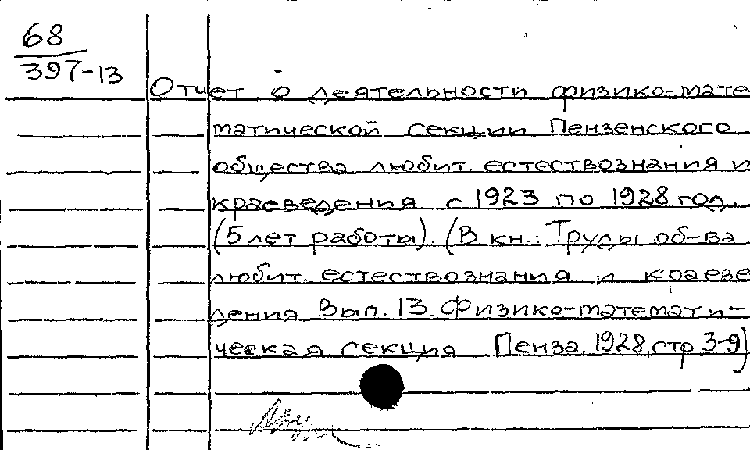 68
397-13
Отчет о деятельности физико-мате
матической секции Пензенского
общества любит. естествознания и
краеведения с 1923 по 1928 год.
(5 лет работы). (В кн.: Труды об-ва
любит. естествознания и краеве
дения Вып. 13. Физико-математи-
ческая секция Пенза, 1928, стр 3-9)